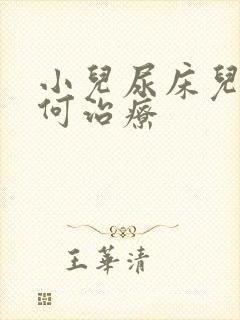 小兒尿床兒
何治療
王華清